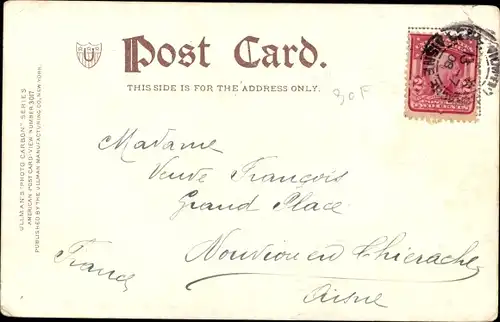 U
Post Card.
THIS SIDE IS FOR THE ADDRESS ONLY.
30F
ULLMAN'S "PHOTO CARBON" SERIES
AMERICAN POST CARD. VIEW NUMBER 3017
PUBLISHED BY THE ULLMAN MANUFACTURING CO. NEW YORK.
Madame
Veuve François
Grand Place
Nouvion en Thierache
Aisne
France